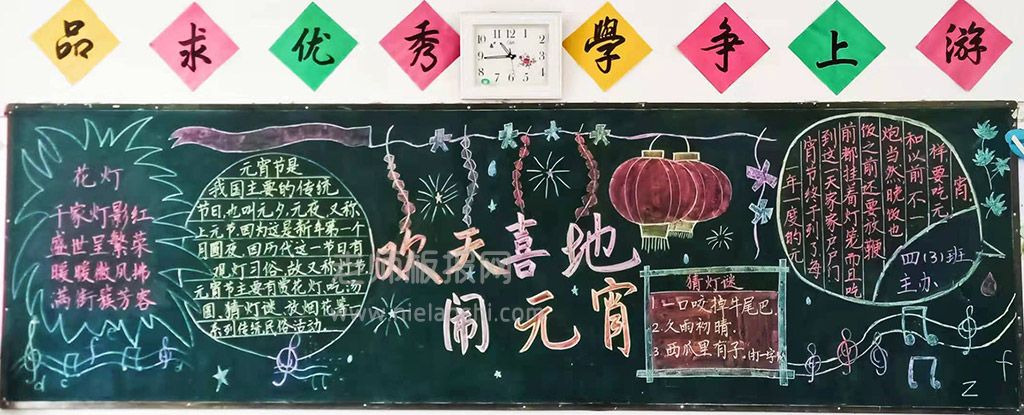 品求优秀學争上游
花灯
千家灯影红
盛世呈繁荣
暖暖微风拂
满街簇芳容
元宵节是
我国主要的传统
节日,也叫元夕、元夜,又称
上元节因为这是新年第一个
月圆夜,因历代这一节日有
观灯习俗,故又称灯节
元宵节主要有赏花灯,吃汤
圆、猜灯谜、放烟花等
系列传统民俗活动。
欢天喜地
闹元宵
猜灯谜
1.一口咬掉牛尾巴.
2.久雨初晴.
3.西瓜里有子.
年一度的元
宵节终于到了每
到这一天家家户户门
前都挂着灯笼而且吃
饭之前还要放鞭
炮当然晚饭也
和以前不一
样要吃元
宵
四(3)班
主办.
www.